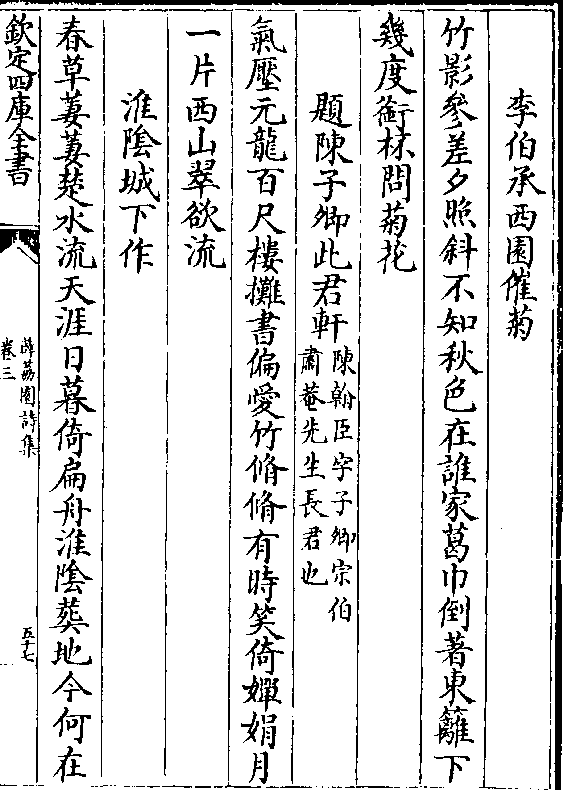 李伯承西園催菊
竹影參差夕照斜不知秋色在誰家葛巾倒著東籬下
幾度銜杯問菊花
題陳子卿此君軒
陳翰臣字子卿宗伯
肅菴先生長君也
氣壓元龍百尺樓攤書偏愛竹脩脩有時笑倚嬋娟月
一片西山翠欲流
淮陰城下作
春草萋萋楚水流天涯日暮倚扁舟淮陰葬地今何在
欽定四庫全書
薜荔園詩集
卷三
五十七